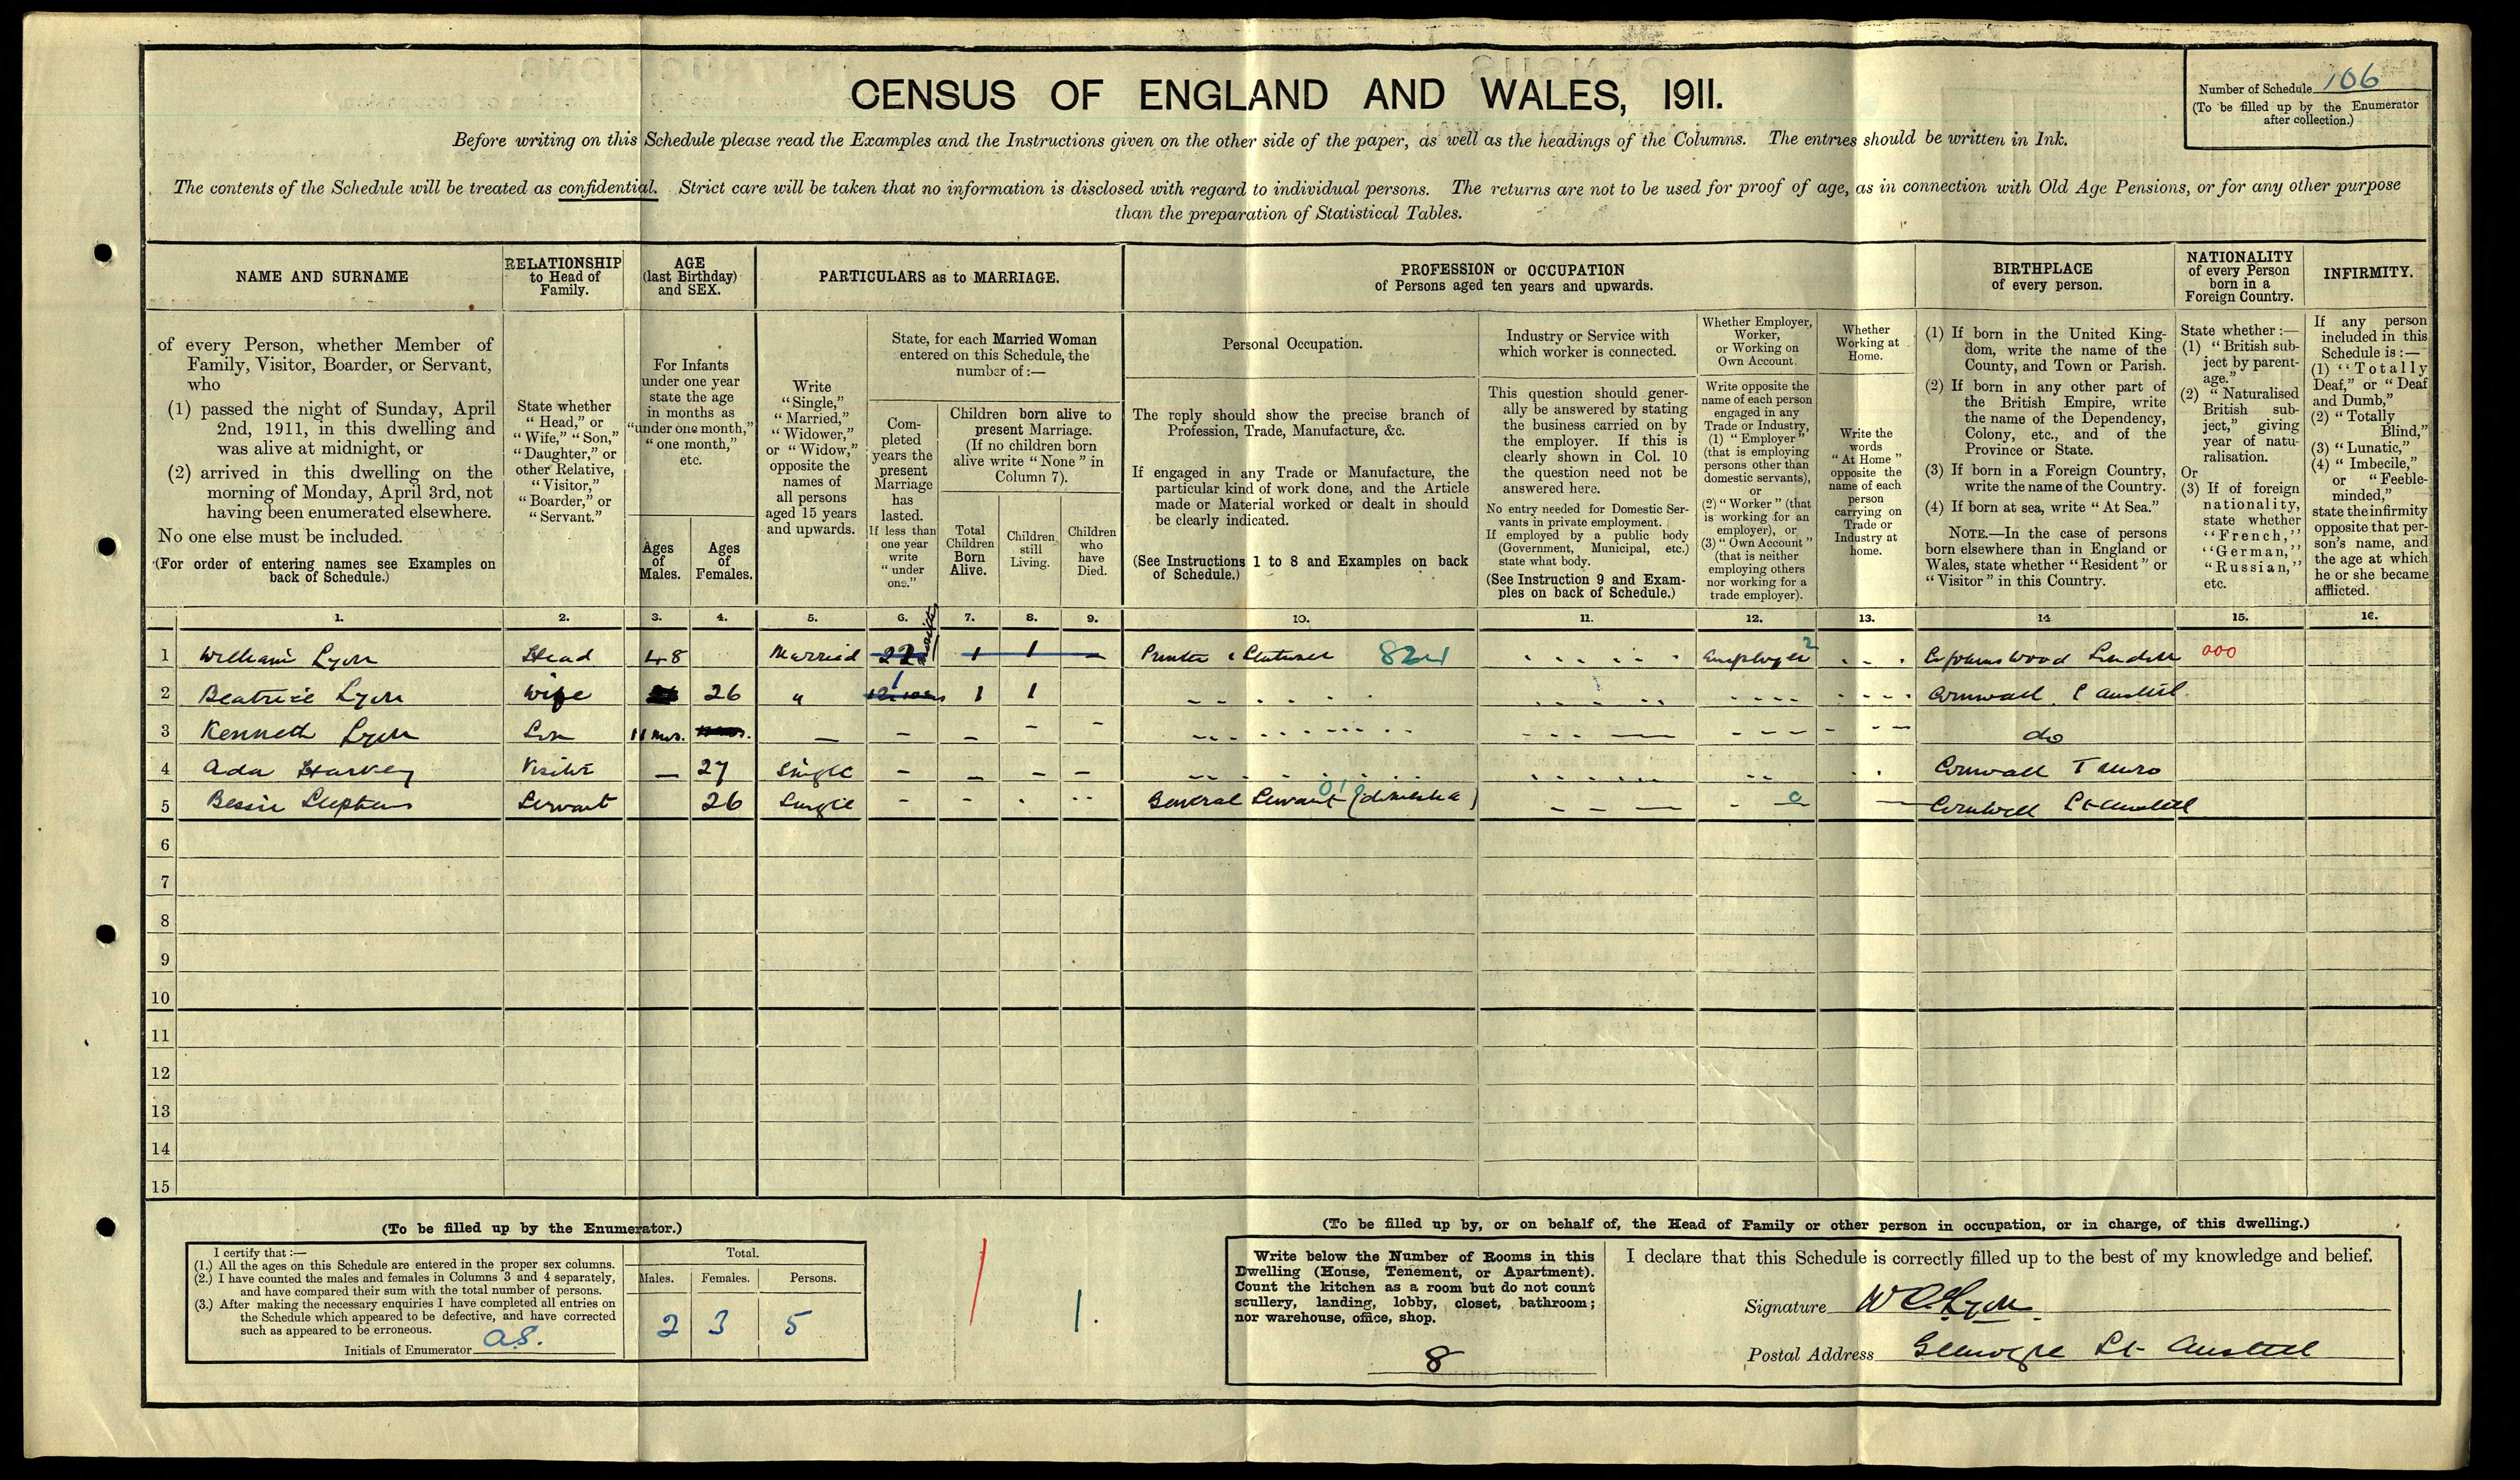 CENSUS OF ENGLAND AND WALES, 1911.
Number of Schedule 106
(To be filled up by the Enumerator
after collection.)
Before writing on this Schedule please read the Examples and the Instructions given on the other side of the paper, as well as the headings of the Columns. The entries should be written in Ink.
The contents of the Schedule will be treated as confidential. Strict care will be taken that no information is disclosed with regard to individual persons. The returns are not to be used for proof of age, as in connection with Old Age Pensions, or for any other purpose
than the preparation of Statistical Tables.
NAME AND SURNAME
of every Person, whether Member of
Family, Visitor, Boarder, or Servant,
who
(1) passed the night of Sunday, April
2nd, 1911, in this dwelling and
was alive at midnight, or
(2) arrived in this dwelling on the
morning of Monday, April 3rd, not
having been enumerated elsewhere.
No one else must be included.
(For order of entering names see Examples on
back of Schedule.)
RELATIONSHIP
to Head of
Family.
State whether
"Head," or
"Wife," "Son,"
"Daughter," or
other Relative,
"Visitor,"
"Boarder," or
"Servant."
AGE
(last Birthday)
and SEX.
For Infants
under one year
state the age
in months as
"under one month,"
"one month,"
etc.
Ages
of
Males.
Ages
of
Females.
PARTICULARS as to MARRIAGE.
Write
"Single,"
"Married,"
"Widower,"
or "Widow,"
opposite the
names of
all persons
aged 15 years
and upwards.
State, for each Married Woman
entered on this Schedule, the
number of :—
Com-
pleted
years the
present
Marriage
has
lasted.
If less than
one year
write
"under
one."
Children born alive to
present Marriage.
(If no children born
alive write "None" in
Column 7).
Total
Children
Born
Alive.
Children
still
Living.
Children
who
have
Died.
PROFESSION or OCCUPATION
of Persons aged ten years and upwards.
Personal Occupation.
The reply should show the precise branch of
Profession, Trade, Manufacture, &c.
If engaged in any Trade or Manufacture, the
particular kind of work done, and the Article
made or Material worked or dealt in should
be clearly indicated.
(See Instructions 1 to 8 and Examples on back
of Schedule.)
Industry or Service with
which worker is connected.
This question should gener-
ally be answered by stating
the business carried on by
the employer. If this is
clearly shown in Col. 10
the question need not be
answered here.
No entry needed for Domestic Ser-
vants in private employment.
If employed by a public body
(Government, Municipal, etc.)
state what body.
(See Instruction 9 and Exam-
ples on back of Schedule.)
Whether Employer,
Worker,
or Working on
Own Account.
Write opposite the
name of each person
engaged in any
Trade or Industry,
(1) "Employer"
(that is employing
persons other than
domestic servants),
or
(2) "Worker" (that
is working for an
employer), or
(3) "Own Account"
(that is neither
employing others
nor working for a
trade employer).
Whether
Working at
Home.
Write the
words
"At Home"
opposite the
name of each
person
carrying on
Trade or
Industry at
home.
BIRTHPLACE
of every person.
(1) If born in the United King-
dom, write the name of the
County, and Town or Parish.
(2) If born in any other part of
the British Empire, write
the name of the Dependency,
Colony, etc., and of the
Province or State.
(3) If born in a Foreign Country,
write the name of the Country.
(4) If born at sea, write "At Sea."
NOTE.—In the case of persons
born elsewhere than in England or
Wales, state whether "Resident" or
"Visitor" in this Country.
NATIONALITY
of every Person
born in a
Foreign Country.
State whether :—
(1) "British sub-
ject by parent-
age."
(2) "Naturalised
British sub-
ject," giving
year of natu-
ralisation.
Or
(3) If of foreign
nationality,
state whether
"French,"
"German,"
"Russian,"
etc.
INFIRMITY.
If any person
included in this
Schedule is :—
(1) "Totally
Deaf," or "Deaf
and Dumb,"
(2) "Totally
Blind,"
(3) "Lunatic,"
(4) "Imbecile,"
or "Feeble-
minded,"
state the infirmity
opposite that per-
son's name, and
the age at which
he or she became
afflicted.
1. 2. 3. 4. 5. 6. 7. 8. 9. 10. 11. 12. 13. 14 15. 16.
1 William Lyon Head 48 Married 22 1 1 — Printer & Stationer 821 Employer 2 St Johns Wood London 000
2 Beatrice Lyon Wife 26 " 1 1 1 Cornwall St Austell
3 Kenneth Lyon Son 11 mos. — — — — — do
4 Ada Harvey Visitor — 27 Single — — — — Cornwall Truro
5 Bessie Stephens Servant 26 Single — — General Servant (domestic) 0 Cornwall St Austell
6
7
8
9
10
11
12
13
14
15
(To be filled up by the Enumerator.)
I certify that :—
(1.) All the ages on this Schedule are entered in the proper sex columns.
(2.) I have counted the males and females in Columns 3 and 4 separately,
and have compared their sum with the total number of persons.
(3.) After making the necessary enquiries I have completed all entries on
the Schedule which appeared to be defective, and have corrected
such as appeared to be erroneous.
Initials of Enumerator A.S.
Total.
Males. Females. Persons.
2 3 5
1.
(To be filled up by, or on behalf of, the Head of Family or other person in occupation, or in charge, of this dwelling.)
Write below the Number of Rooms in this
Dwelling (House, Tenement, or Apartment).
Count the kitchen as a room but do not count
scullery, landing, lobby, closet, bathroom;
nor warehouse, office, shop.
8
I declare that this Schedule is correctly filled up to the best of my knowledge and belief.
Signature W Lyon
Postal Address St Austell